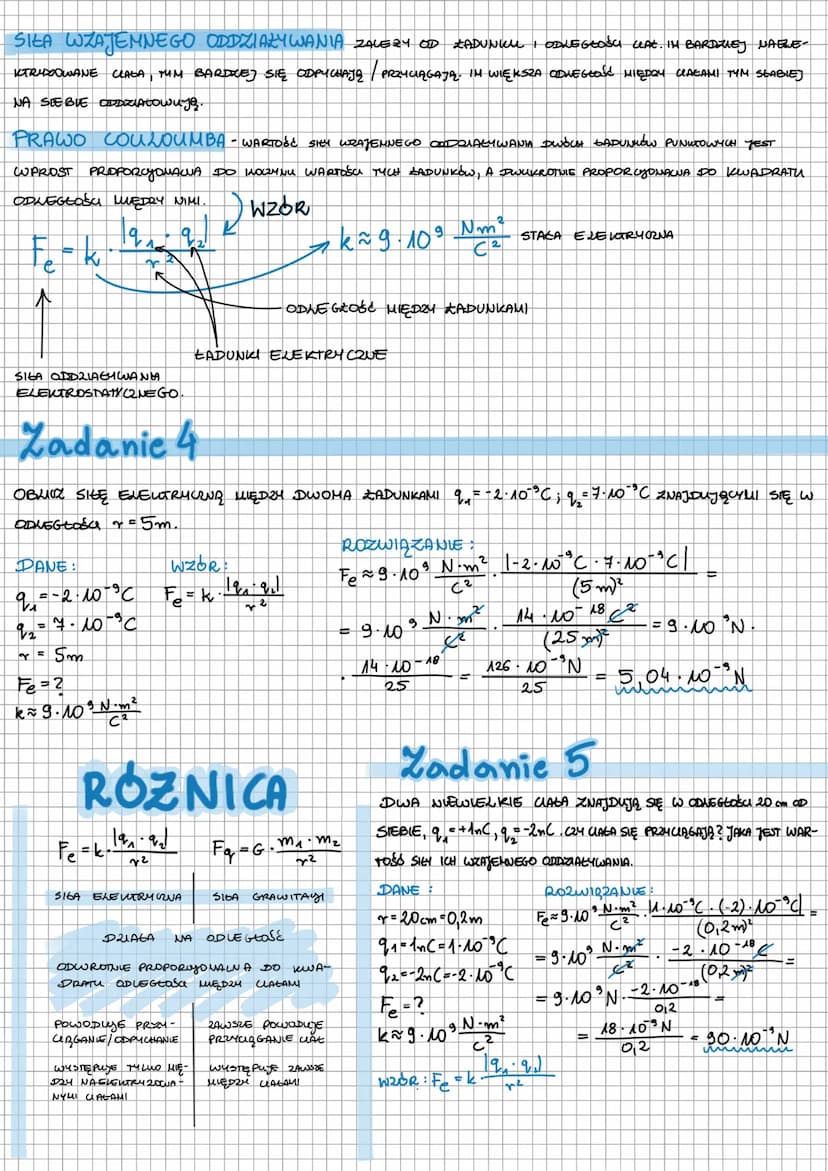 SIŁA WZAJEMNEGO ODDZIAŁYWANIA ZALEŻY OD ŁADUNKU I ODLEGŁOŚCI CIAŁ. IM BARDZIEJ NAELE-
KTRYZOWANE CIAŁA, TYM BARDZIEJ SIĘ ODPYCHAJĄ / PRZYCIĄGAJĄ. IM WIĘKSZA ODLEGŁOŚĆ MIĘDZY CIAŁAMI TYM SŁABIEJ
NA SIEBIE ODDZIAŁOWUJĄ.
PRAWO COULOUMBA - WARTOŚĆ SIŁY WZAJEMNEGO ODDZIAŁYWANIA DWÓCH ŁADUNKÓW PUNKTOWYCH JEST
WPROST PROPORCJONALNA DO ILOCZYNU WARTOŚCI TYCH ŁADUNKÓW, A DWUKROTNIE PROPORCJONALNA DO KWADRATU
ODLEGŁOŚCI MIĘDZY NIMI.
WZÓR
Fe = k · |q₁ · q₂| / r²
k ≈ 9 · 10⁹ Nm²/C² STAŁA ELEKTRYCZNA
ODLEGŁOŚĆ MIĘDZY ŁADUNKAMI
ŁADUNKI ELEKTRYCZNE
SIŁA ODDZIAŁYWANIA
ELEKTROSTATYCZNEGO.
Zadanie 4
OBLICZ SIŁĘ ELEKTRYCZNĄ MIĘDZY DWOMA ŁADUNKAMI q₁ = -2 · 10⁻⁹C ; q₂ = 7 · 10⁻⁹C ZNAJDUJĄCYMI SIĘ W
ODLEGŁOŚCI r = 5m.
DANE :
q₁ = -2 · 10⁻⁹C
q₂ = 7 · 10⁻⁹C
r = 5m
Fe = ?
k ≈ 9 · 10⁹ N·m²/C²
WZÓR :
Fe = k · |q₁ · q₂| / r²
ROZWIĄZANIE :
Fe ≈ 9 · 10⁹ N·m²/C² · |-2 · 10⁻⁹C · 7 · 10⁻⁹C| / (5m)² =
= 9 · 10⁹ N·m²/C² · 14 · 10⁻¹⁸ C² / (25 m)² = 9 · 10⁹N ·
· 14 · 10⁻¹⁸ / 25 = 126 · 10⁻⁹N / 25 = 5,04 · 10⁻⁹N
RÓŻNICA
Fe = k · |q₁ · q₂| / r²
Fg = G · m₁ · m₂ / r²
SIŁA ELEKTRYCZNA
SIŁA GRAWITACJI
DZIAŁA NA ODLEGŁOŚĆ
ODWROTNIE PROPORCJONALNA DO KWA-
DRATU ODLEGŁOŚCI MIĘDZY CIAŁAMI
POWODUJE PRZY-
CIĄGANIE/ODPYCHANIE
ZAWSZE POWODUJE
PRZYCIĄGANIE CIAŁ
WYSTĘPUJE TYLKO MIĘ-
DZY NAELEKTRYZOWA-
NYMI CIAŁAMI
WYSTĘPUJE ZAWSZE
MIĘDZY CIAŁAMI
Zadanie 5
DWA NIEWIELKIE CIAŁA ZNAJDUJĄ SIĘ W ODLEGŁOŚCI 20 cm OD
SIEBIE, q₁ = +1nC, q₂ = -2nC. CZY CIAŁA SIĘ PRZYCIĄGAJĄ? JAKA JEST WAR-
TOŚĆ SIŁY ICH WZAJEMNEGO ODDZIAŁYWANIA.
DANE :
r = 20cm = 0,2m
q₁ = 1nC = 1 · 10⁻⁹C
q₂ = -2nC = -2 · 10⁻⁹C
Fe = ?
k ≈ 9 · 10⁹ N·m²/C²
WZÓR : Fe = k · |q₁ · q₂| / r²
ROZWIĄZANIE :
Fe ≈ 9 · 10⁹ N·m²/C² · |1 · 10⁻⁹C · (-2) · 10⁻⁹C| / (0,2m)² =
= 9 · 10⁹ N·m²/C² · -2 · 10⁻¹⁸ C / (0,2 m)² =
= 9 · 10⁹N · -2 · 10⁻¹⁸ / 0,2 =
= 18 · 10⁻⁹N / 0,2 = 90 · 10⁻⁹N